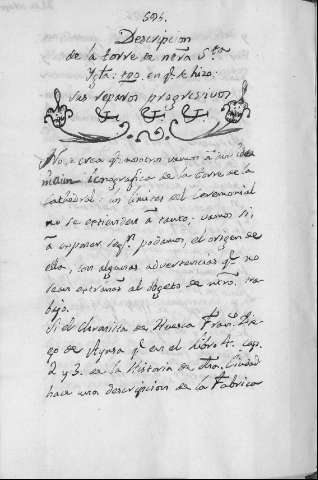 Descripcion
de la torre de nrã Sta
Ygta: tpo. en q.e se hizo:
sus reparos progresivos
No se crea q.e nosotros vamos á dar una
icnografica de la Torre de la
Cathedral: los limites del Ceremonial
no se extienden á tanto: vamos si,
á exponer seg.n podamos, el origen de
ella, con algunas advertencias q.e no
sean estrañas al objeto de ntrõ. tra-
bajo.
Si el Chronista de Huesca Fran.co Die-
go de Aynsa q.e en el libro 4. cap.
2 y 3. de la Historia de dha. Ciudad
hace una descripcion de la Fabrica